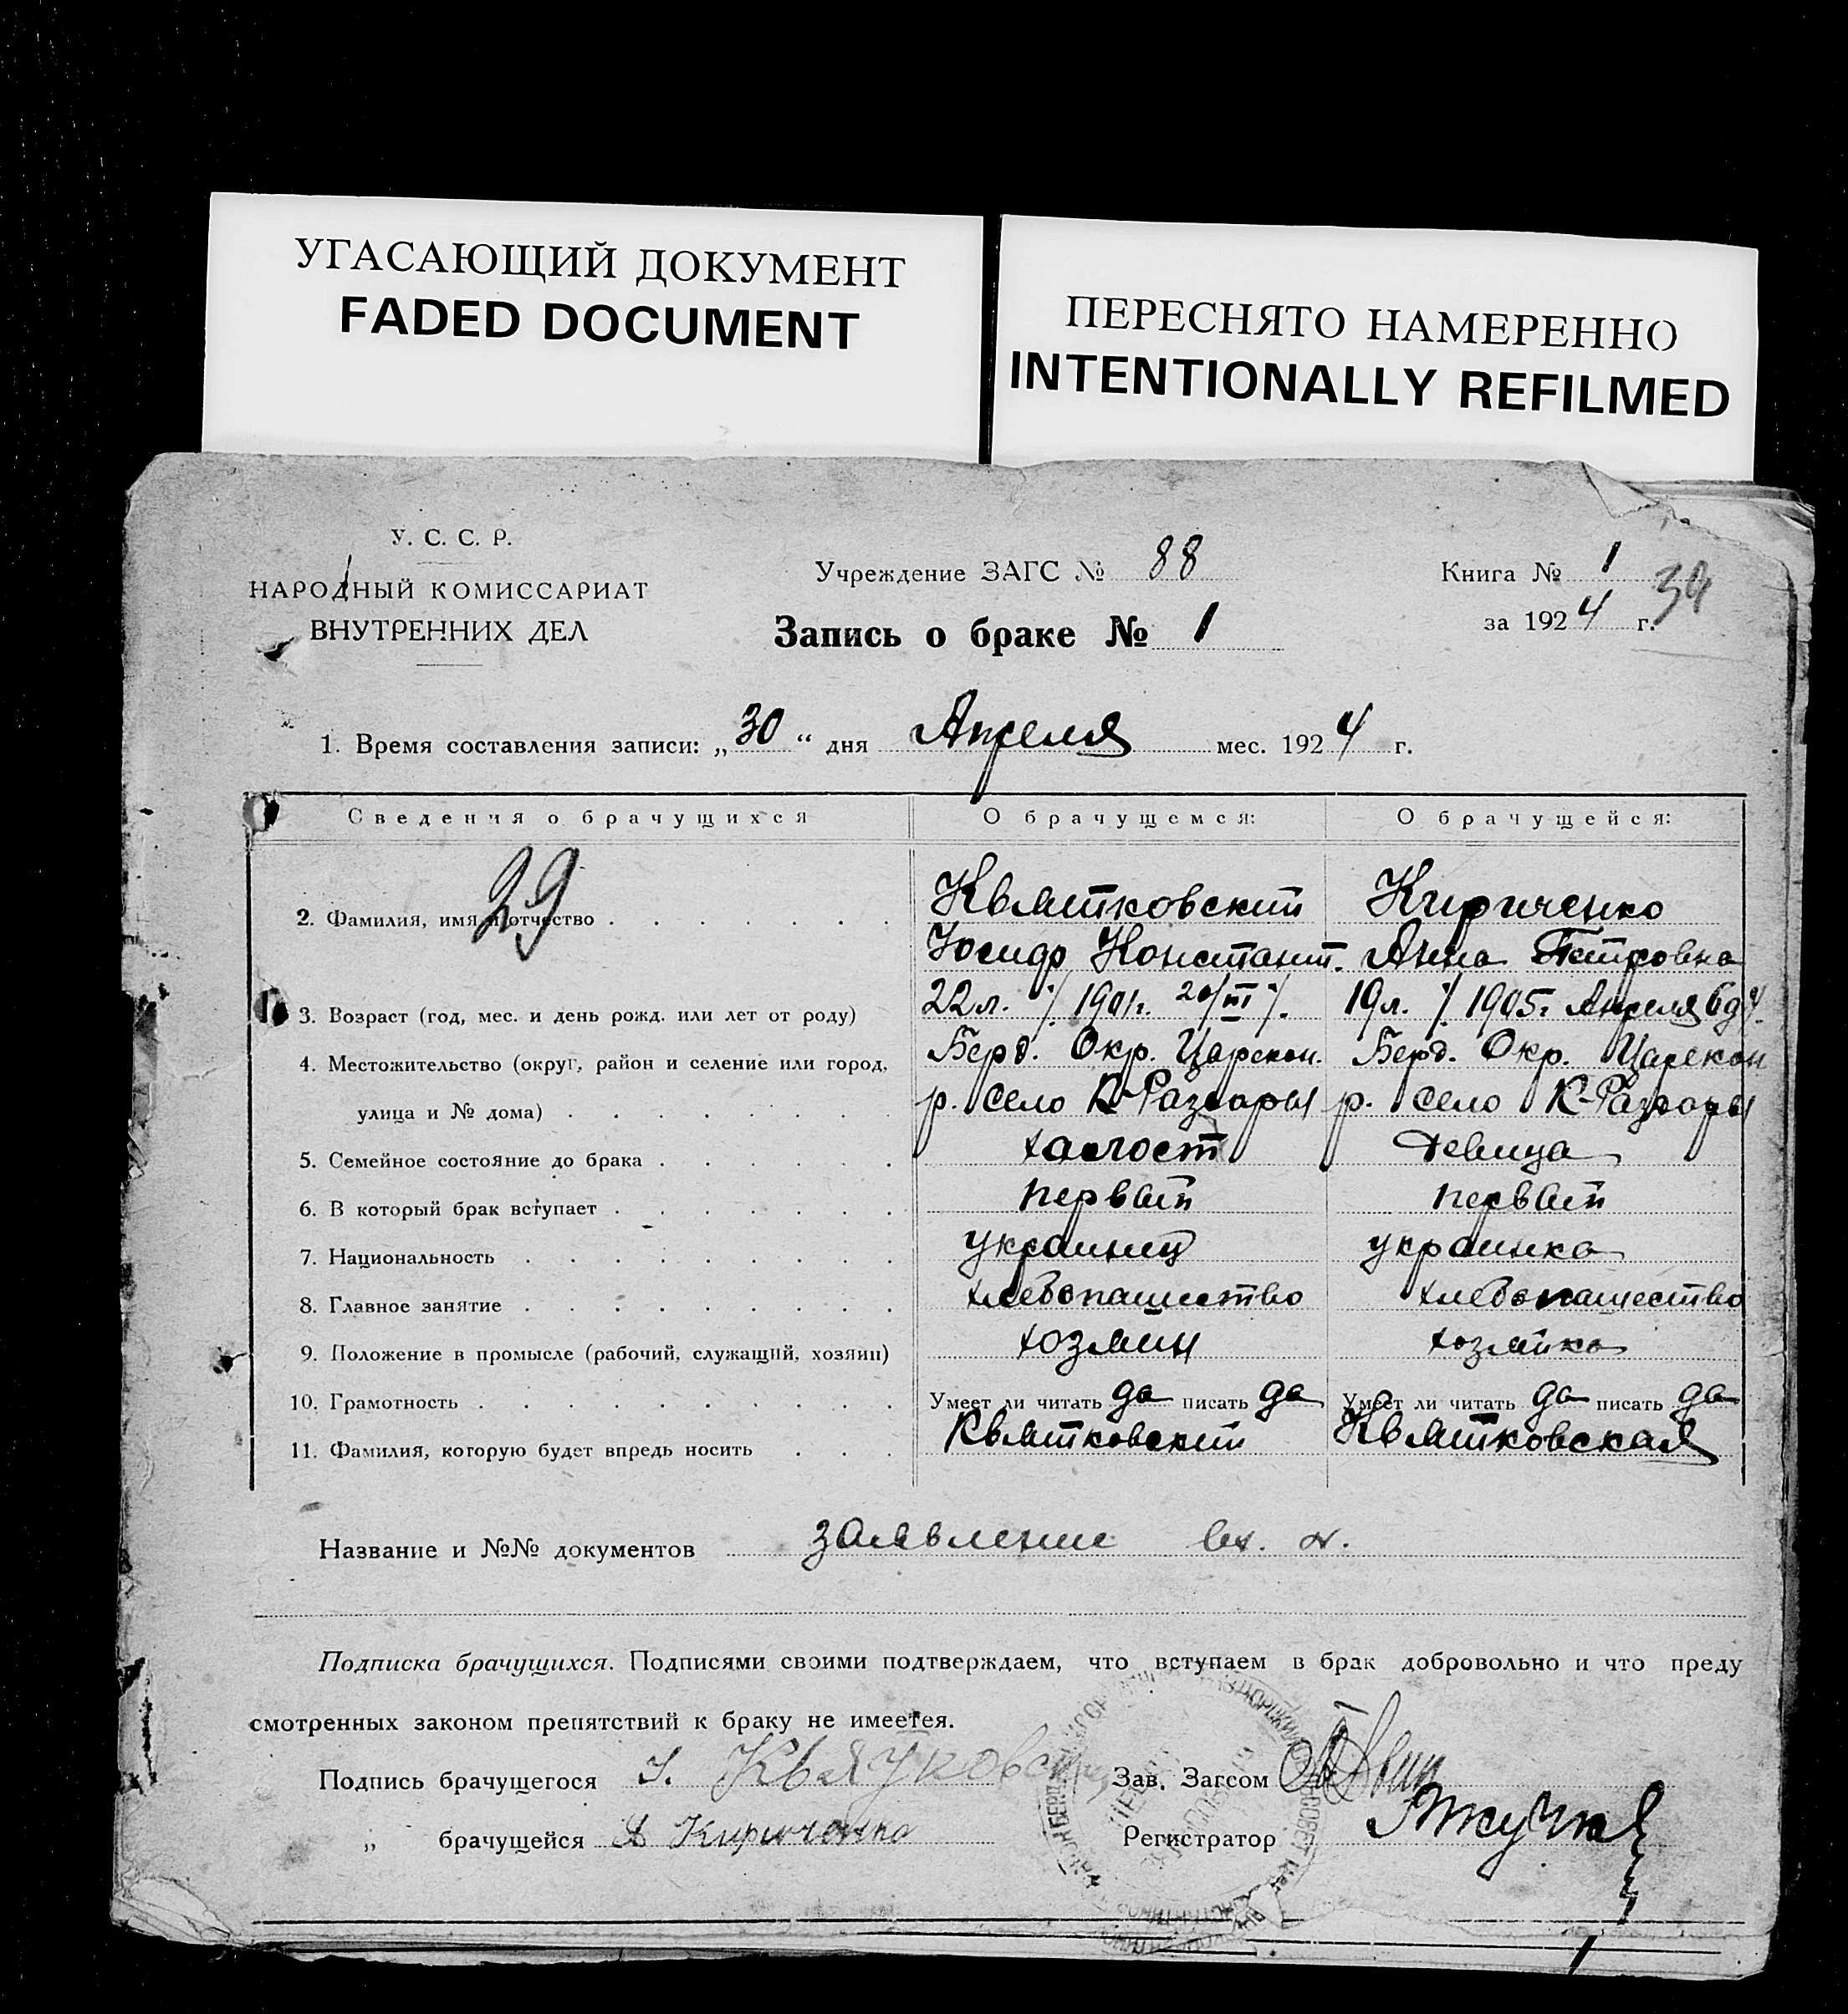 УГАСАЮЩИЙ ДОКУМЕНТ
FADED DOCUMENT
ПЕРЕСНЯТО НАМЕРЕННО
INTENTIONALLY REFILMED
У. С. С. Р.
НАРОДНЫЙ КОМИССАРИАТ
ВНУТРЕННИХ ДЕЛ
Учреждение ЗАГС № 88
Запись о браке № 1
Книга № 1
39
за 1924 г.
1. Время составления записи: „30“ дня Апреля мес. 1924 г.
Сведения о брачущихся О брачущемся: О брачущейся:
29
2. Фамилия, имя и отчество Квятковский Кириченко
Иосиф Констант. Анна Петровна
3. Возраст (год, мес. и день рожд. или лет от роду) 22 л. 1901 г. 20/III 19 л. 1905 г. Апреля 6 д.
4. Местожительство (округ, район и селение или город, Берд. Окр. Царекон. Берд. Окр. Царекон
улица и № дома) р. село К-Раздоры р. село К-Раздоры
5. Семейное состояние до брака холост девица
6. В который брак вступает первый первый
7. Национальность украинец украинка
8. Главное занятие хлебопашество хлебопашество
9. Положение в промысле (рабочий, служащий, хозяин) хозяин хозяйка
10. Грамотность Умеет ли читать да писать да Умеет ли читать да писать да
11. Фамилия, которую будет впредь носить Квятковский Квятковская
Название и №№ документов заявление вх. №.
Подписка брачущихся. Подписями своими подтверждаем, что вступаем в брак добровольно и что преду
смотренных законом препятствий к браку не имеется.
Подпись брачущегося І. Квятковский Зав. Загсом
„ брачущейся А Кириченко Регистратор